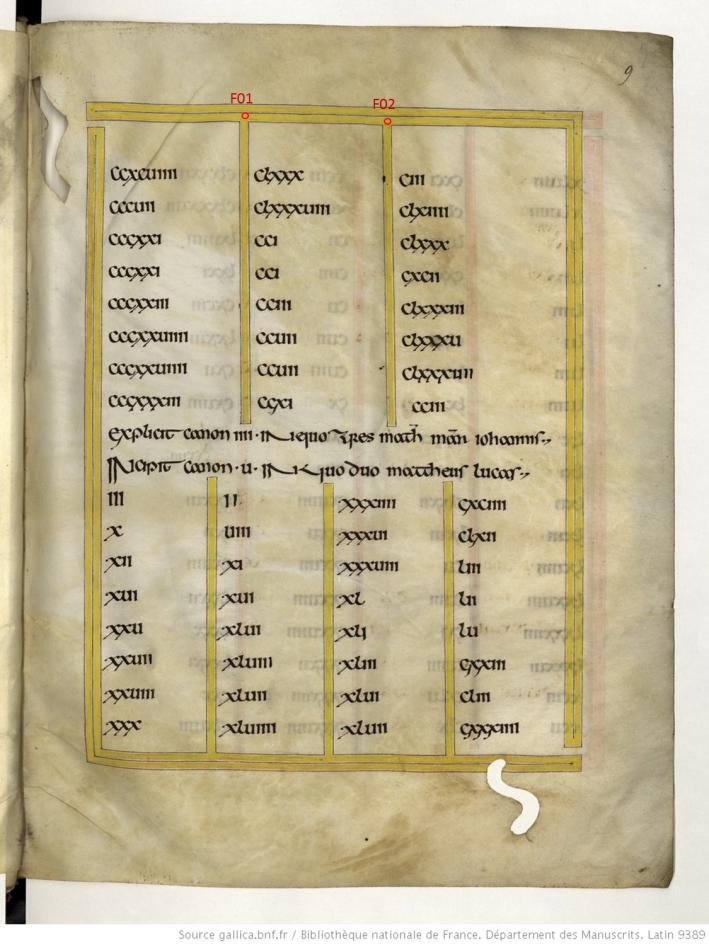 F01 F02
9
ccxcuiiii clxxx ciii
cccuii clxxxuiii clxiiii
cccxxi cci clxxx
cccxxi cci cxcii
cccxxiii cciii clxxxiii
cccxxuiiii ccuii clxxxu
cccxxuiiii ccuii clxxxuii
cccxxxiii ccxi cciii
explicit canon iiii · in equo tres math man iohannis
incipit canon · u · in quo duo mattheus lucas
iii ii xxxiiii cxciiii
x uiii xxxui clxii
xii xi xxxuiii liii
xui xui xl lii
xxu xlui xlj lu
xxuii xluiii xliii cxxiii
xxuiii xluii xlui cliii
xxx xluiiii xluii cxxxiiii
Source gallica.bnf.fr / Bibliothèque nationale de France. Département des Manuscrits. Latin 9389